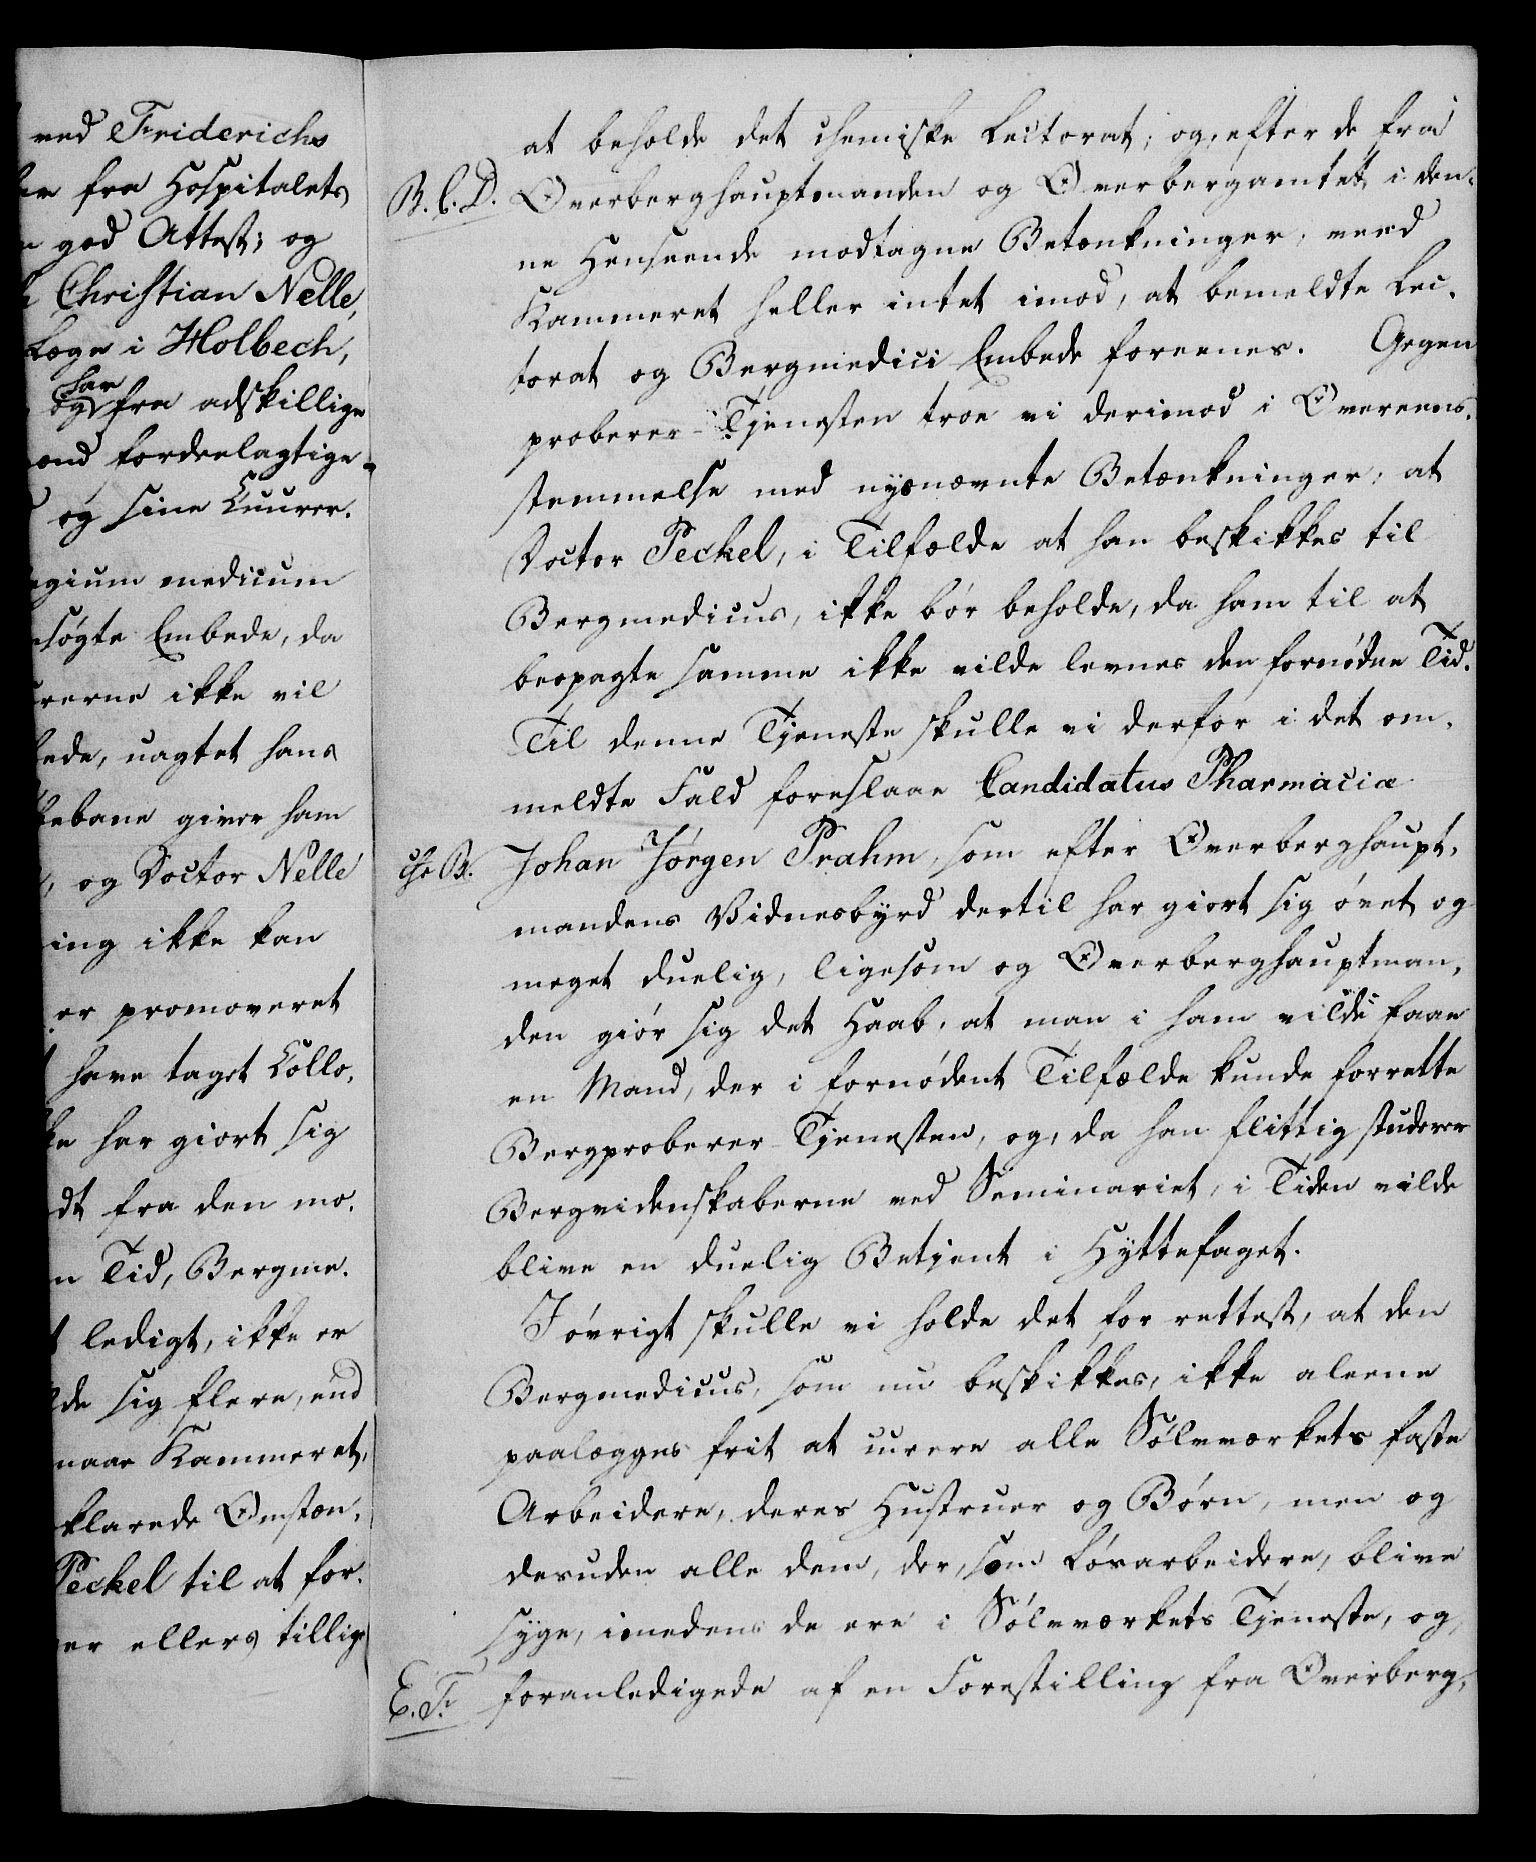 ved Friderichs
fra Hospitalets
god Attest; og
Christian Nelle,
Læge i Holbech,
har
og fra adskillige
ond fordeelagtige
og sine Cuurer.
egium medicum
søgte Embede, da
rerne ikke vil
bede, uagtet hans
kebane giver ham
, og Doctor Nelle
ing ikke kan
er promoveret
have taget Collo,
ke har giort sig
dt fra den mo,
n Tid, Bergme,
t ledigt, ikke er
lde sig flere, end
naar Kammeret,
klarede Omstæn,
Peckel til at for,
er ellers tillige
at beholde det chemiske Lectorat; og, efter de fra
B. C. D. Overberghauptmanden og Overbergamtet i den,
ne Henseende modtagne Betænkninger, veed
Kammeret heller intet imod, at bemeldte Lec,
torat og Bergmedici Embede foreenes. Gegen
proberer-Tjenesten troe vi derimod i Overeens,
stemmelse med nysnævnte Betænkninger, at
Doctor Peckel, i Tilfælde at han beskikkes til
Bergmedicus, ikke bør beholde, da ham til at
beopagte samme ikke vilde levnes den fornødne Tid.
Til denne Tjeneste skulle vi derfor i det om,
meldte Fald foreslaae Candidatus Pharmaciæ
Johan Jørgen Prahm, som efter Overberghaupt,
mandens Vidnesbyrd dertil har giort sig øvet og
meget duelig, ligesom og Overberghauptman,
den giør sig det Haab, at man i ham vilde faae
en Mand, der i fornødent Tilfælde kunde forrette
Bergproberer-Tjenesten, og, da han flittig studerer
Bergvidenskaberne ved Seminariet, i Tiden vilde
blive en duelig Betjent i Hyttefaget.
I øvrigt skulle vi holde det for rettest, at den
Bergmedicus, som nu beskikkes, ikke aleene
paalægges frit at curere alle Sølvværkets faste
Arbeidere, deres Hustruer og Børn, men og
desuden alle dem, der, som Løsarbeidere, blive
syge, imedens de ere i Sølvværkets Tjeneste, og,
E. F. foranledigede af en Forestilling fra Overberg,